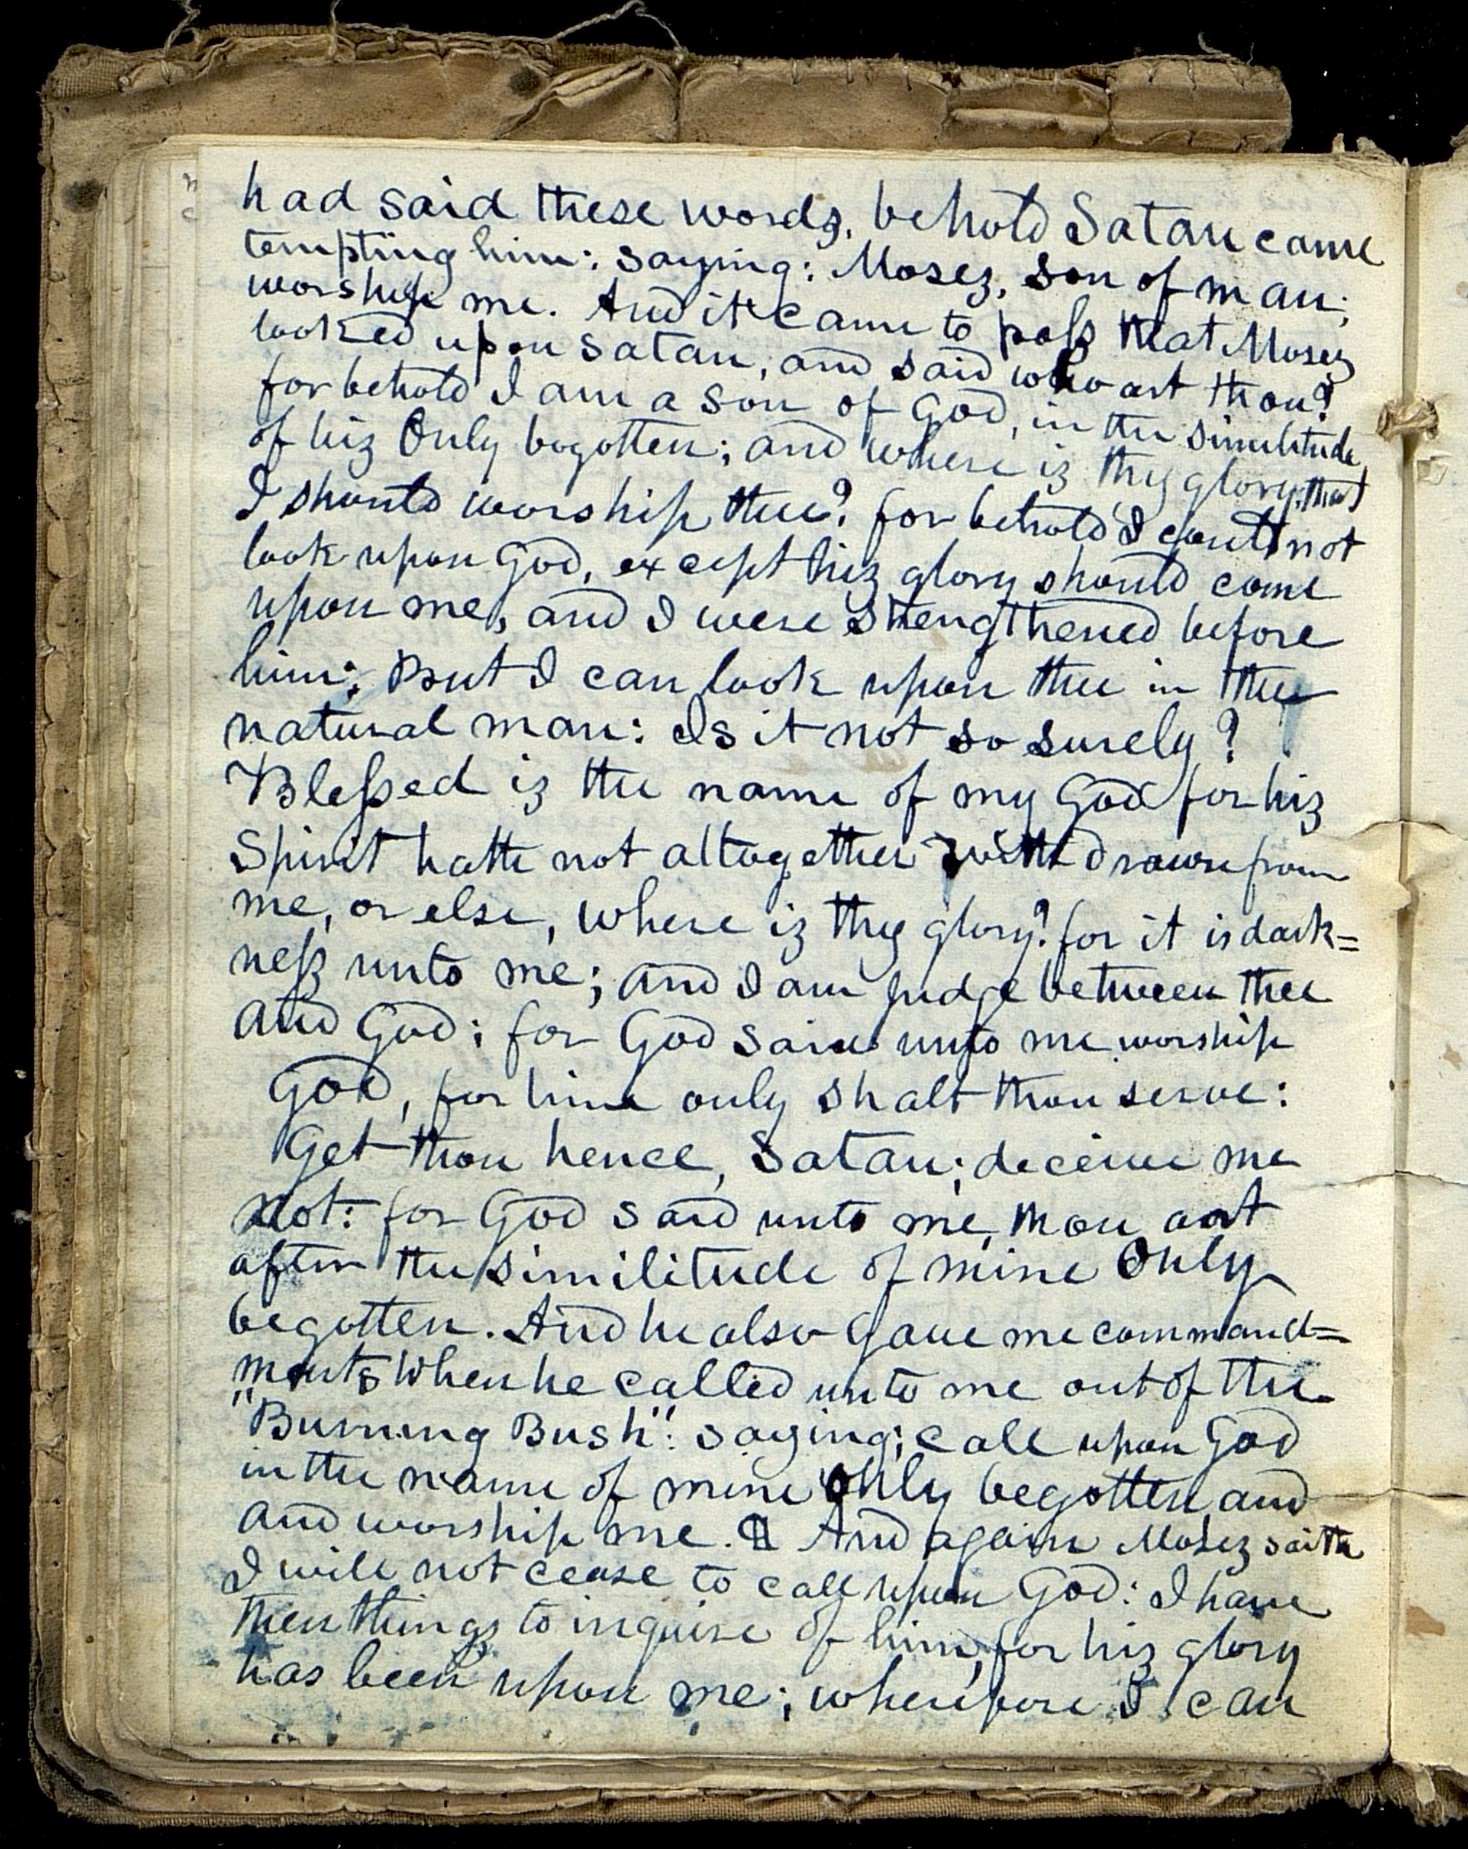 had said these words, behold Satan came
tempting him: saying: Mosez, son of man;
worship me. And it came to paſs that Mosez
looked upon Satan, and said who art thou?
for behold I am a son of God, in the similitude,
of hiz Only begotten; and where iz thy glory, that
I should worship thee? for behold I could not
look upon God, except hiz glory should come
upon me, and I were strengthened before
him; But I can look upon thee in the
natural man: Is it not so surely?
Bleſsed iz the name of my God for hiz
Spirit hath not altogether withdrawn from
me, or else, where iz thy glory? for it is dark=
neſs unto me; and I am judge between thee
and God; for God said unto me worship
God, for him only shalt thou serve:
Get thou hence, Satan; deceive me
not: for God said unto me, thou art
after the similitude of mine Only
begotten. And he also gave me command=
ments when he called unto me out of the
"Burning Bush": saying; call upon God
in the name of mine Only begotten and
and worship me. And again Mosez saith
I will not cease to call upon God: I have
then things to inquire of him, for hiz glory
has been upon me; wherefore I can